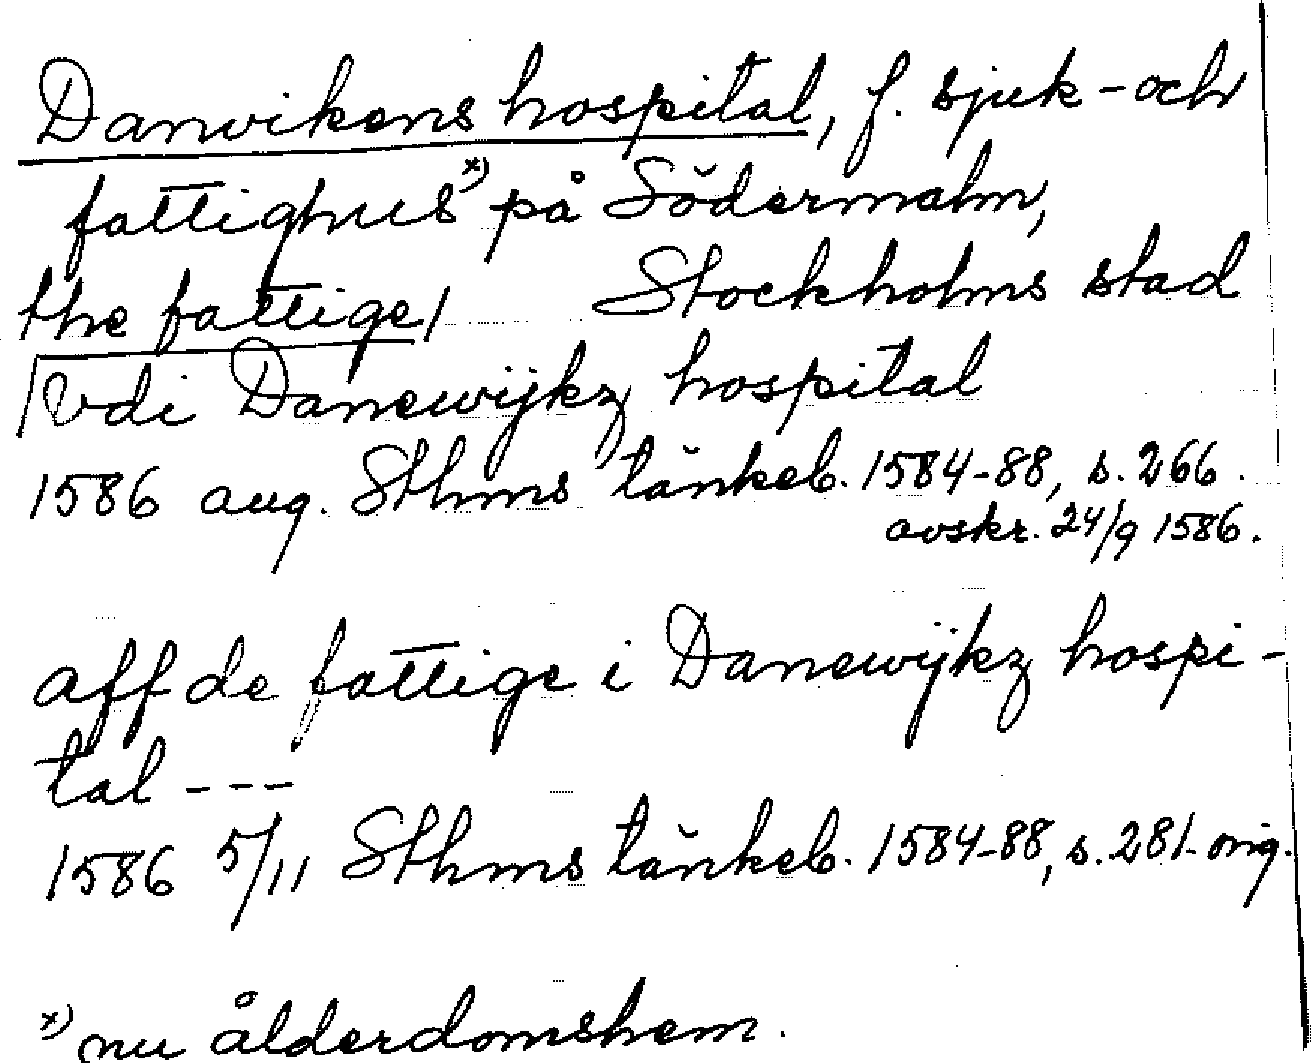 Danvikens hospital, f. sjuk- och
fattighus x) på Södermalm,
the fattige/ Stockholms stad
/vdi Danewijkz hospital
1586 aug. Sthms tänkeb. 1584-88, s. 266.
avskr. 24/9 1586.
aff de fattige i Danewijkz hospi-
tal ---
1586 5/11 Sthms tänkeb. 1584-88, s. 281. orig.
x) nu ålderdomshem.